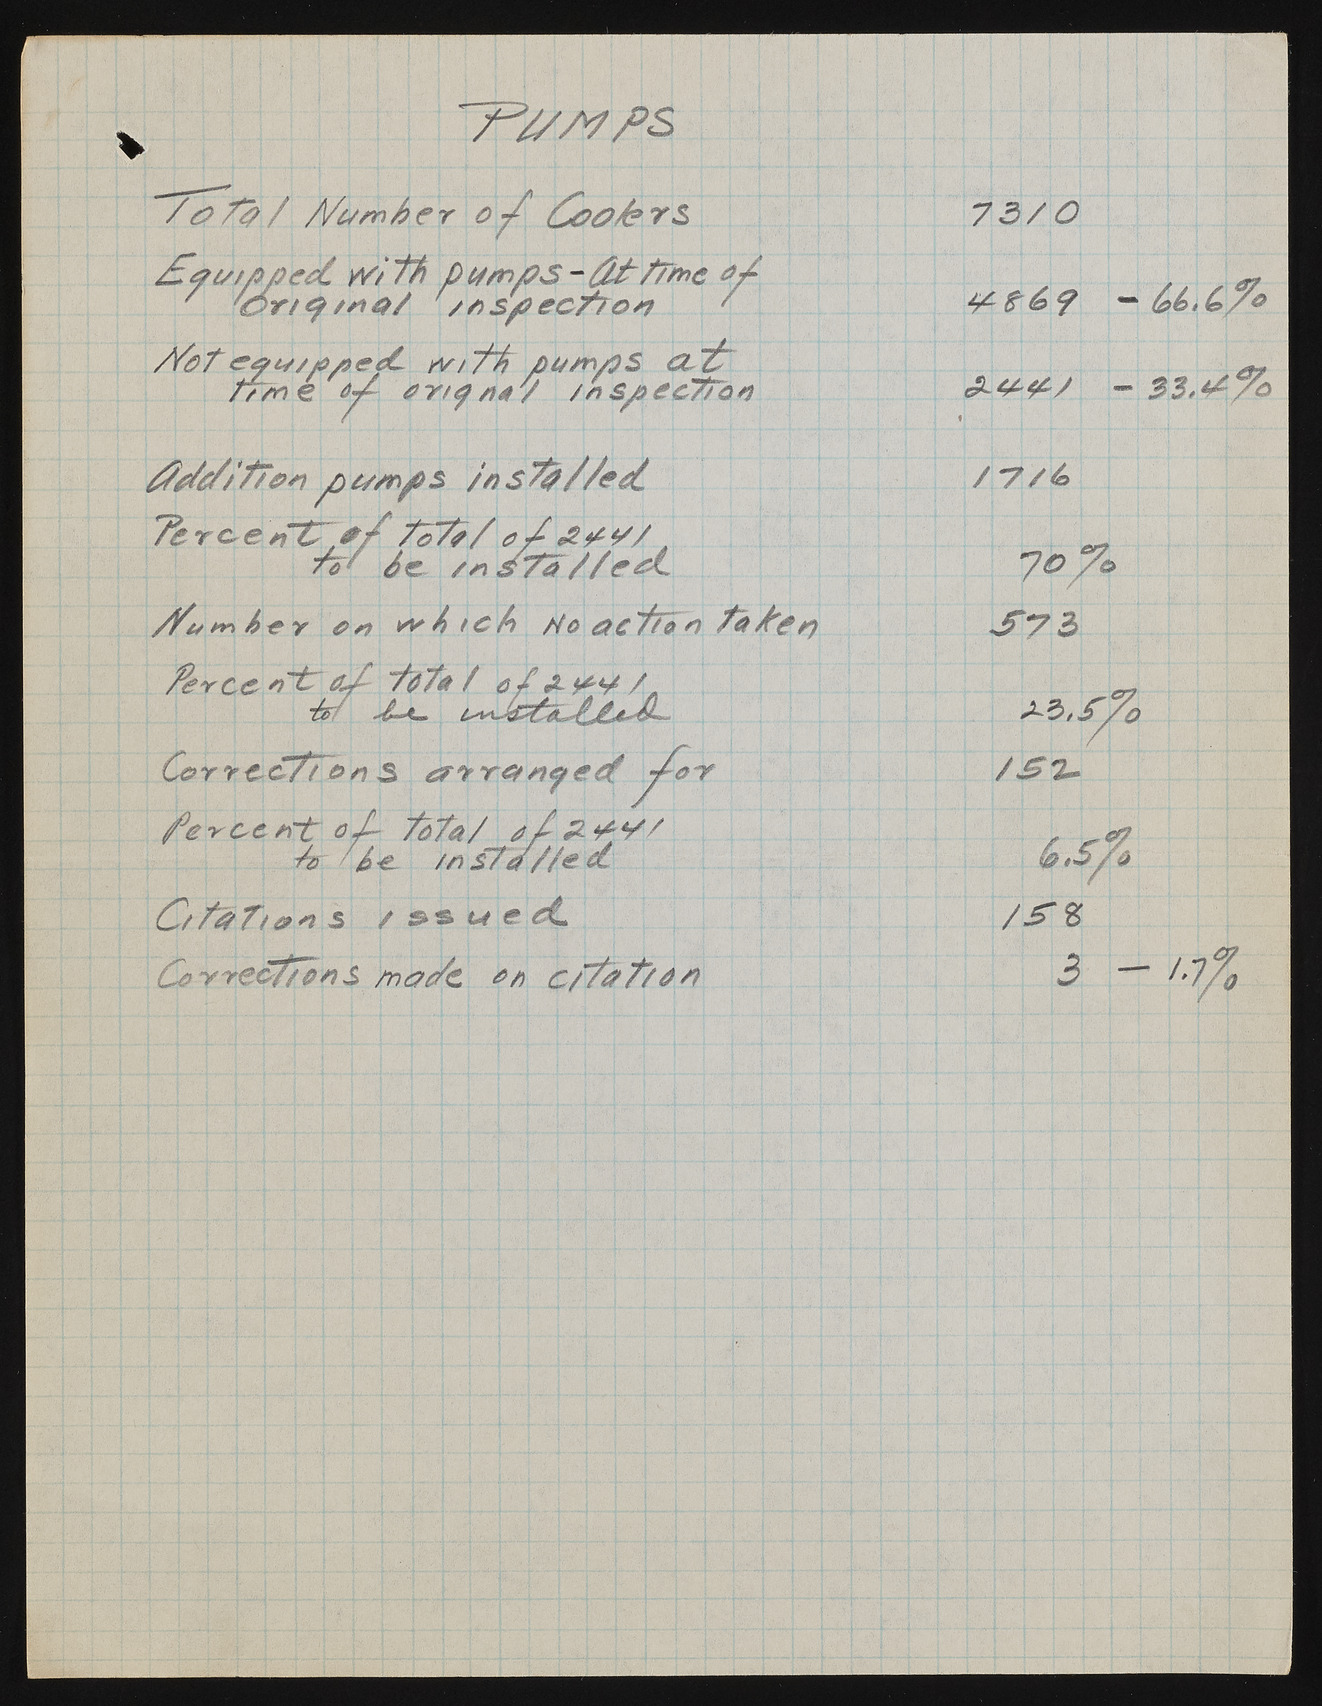 PUMPS
Total Number of Coolers 7310
Equipped with pumps - At time of
original inspection 4869 - 66.6%
Not equipped with pumps at
time of orignal inspection 2441 - 33.4%
Addition pumps installed 1716
Percent of total of 2441
to be installed 70%
Number on which No action taken 573
Percent of total of 2441
to be installed 23.5%
Corrections arranged for 152
Percent of total of 2441
to be installed 6.5%
Citations issued 158
Corrections made on citation 3 - 1.7%